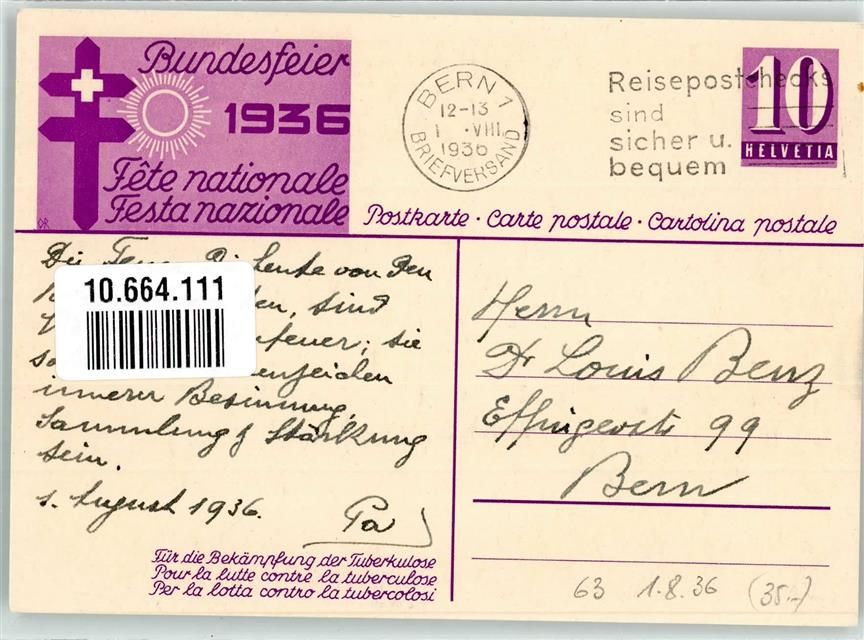 Bundesfeier
1936
Fête nationale
Festa nazionale
BERN 1
12-13
1 ·VIII.
1936
BRIEFVERSAND
Reisepostchecks
sind
sicher u.
bequem
10
HELVETIA
Postkarte · Carte postale · Cartolina postale
Die heute von den
sind
feuer; sie
enzeichen
unserer Besinnung,
Sammlung & Stärkung
sein.
1. August 1936.
Pa
10.664.111
Herrn
Dr Louis Benz
Effingerstr 99
Bern
Für die Bekämpfung der Tuberkulose
Pour la lutte contre la tuberculose
Per la lotta contro la tubercolosi
63 1.8.36 (35.-)